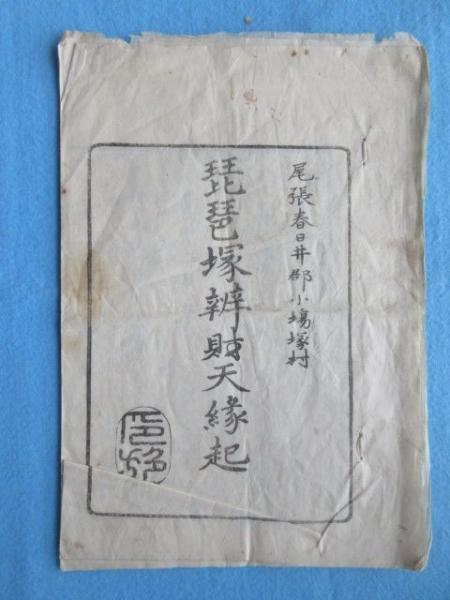 尾張春日井郡小塲塚村
琵琶塚辨財天緣起